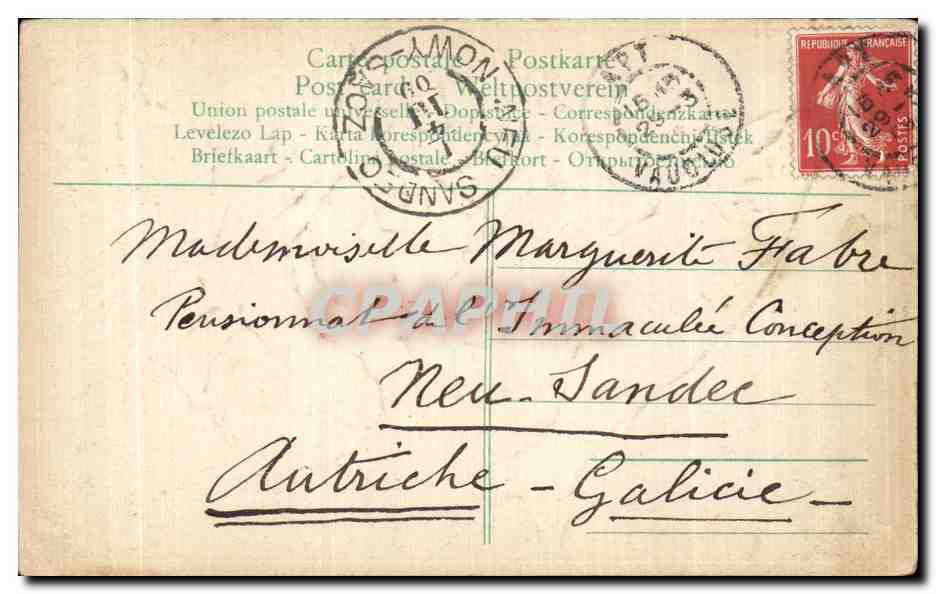 Carte postale Postkarte
Postcard Weltpostverein
Union postale universelle - Dopisnice - Correspondenzkarte
Levelező Lap - Karta korespondencyjna - Korespondenční lístek
Briefkaart - Cartolina postale - Brefkort - Открытое письмо
NEU SANDEC
NOWY SĄCZ
APT
VAUCLUSE
REPUBLIQUE FRANÇAISE
10c
POSTES
Mademoiselle Marguerite Fabre
Pensionnat de l'Immaculée Conception
Neu-Sandec
Autriche - Galicie -
CPAPHIL